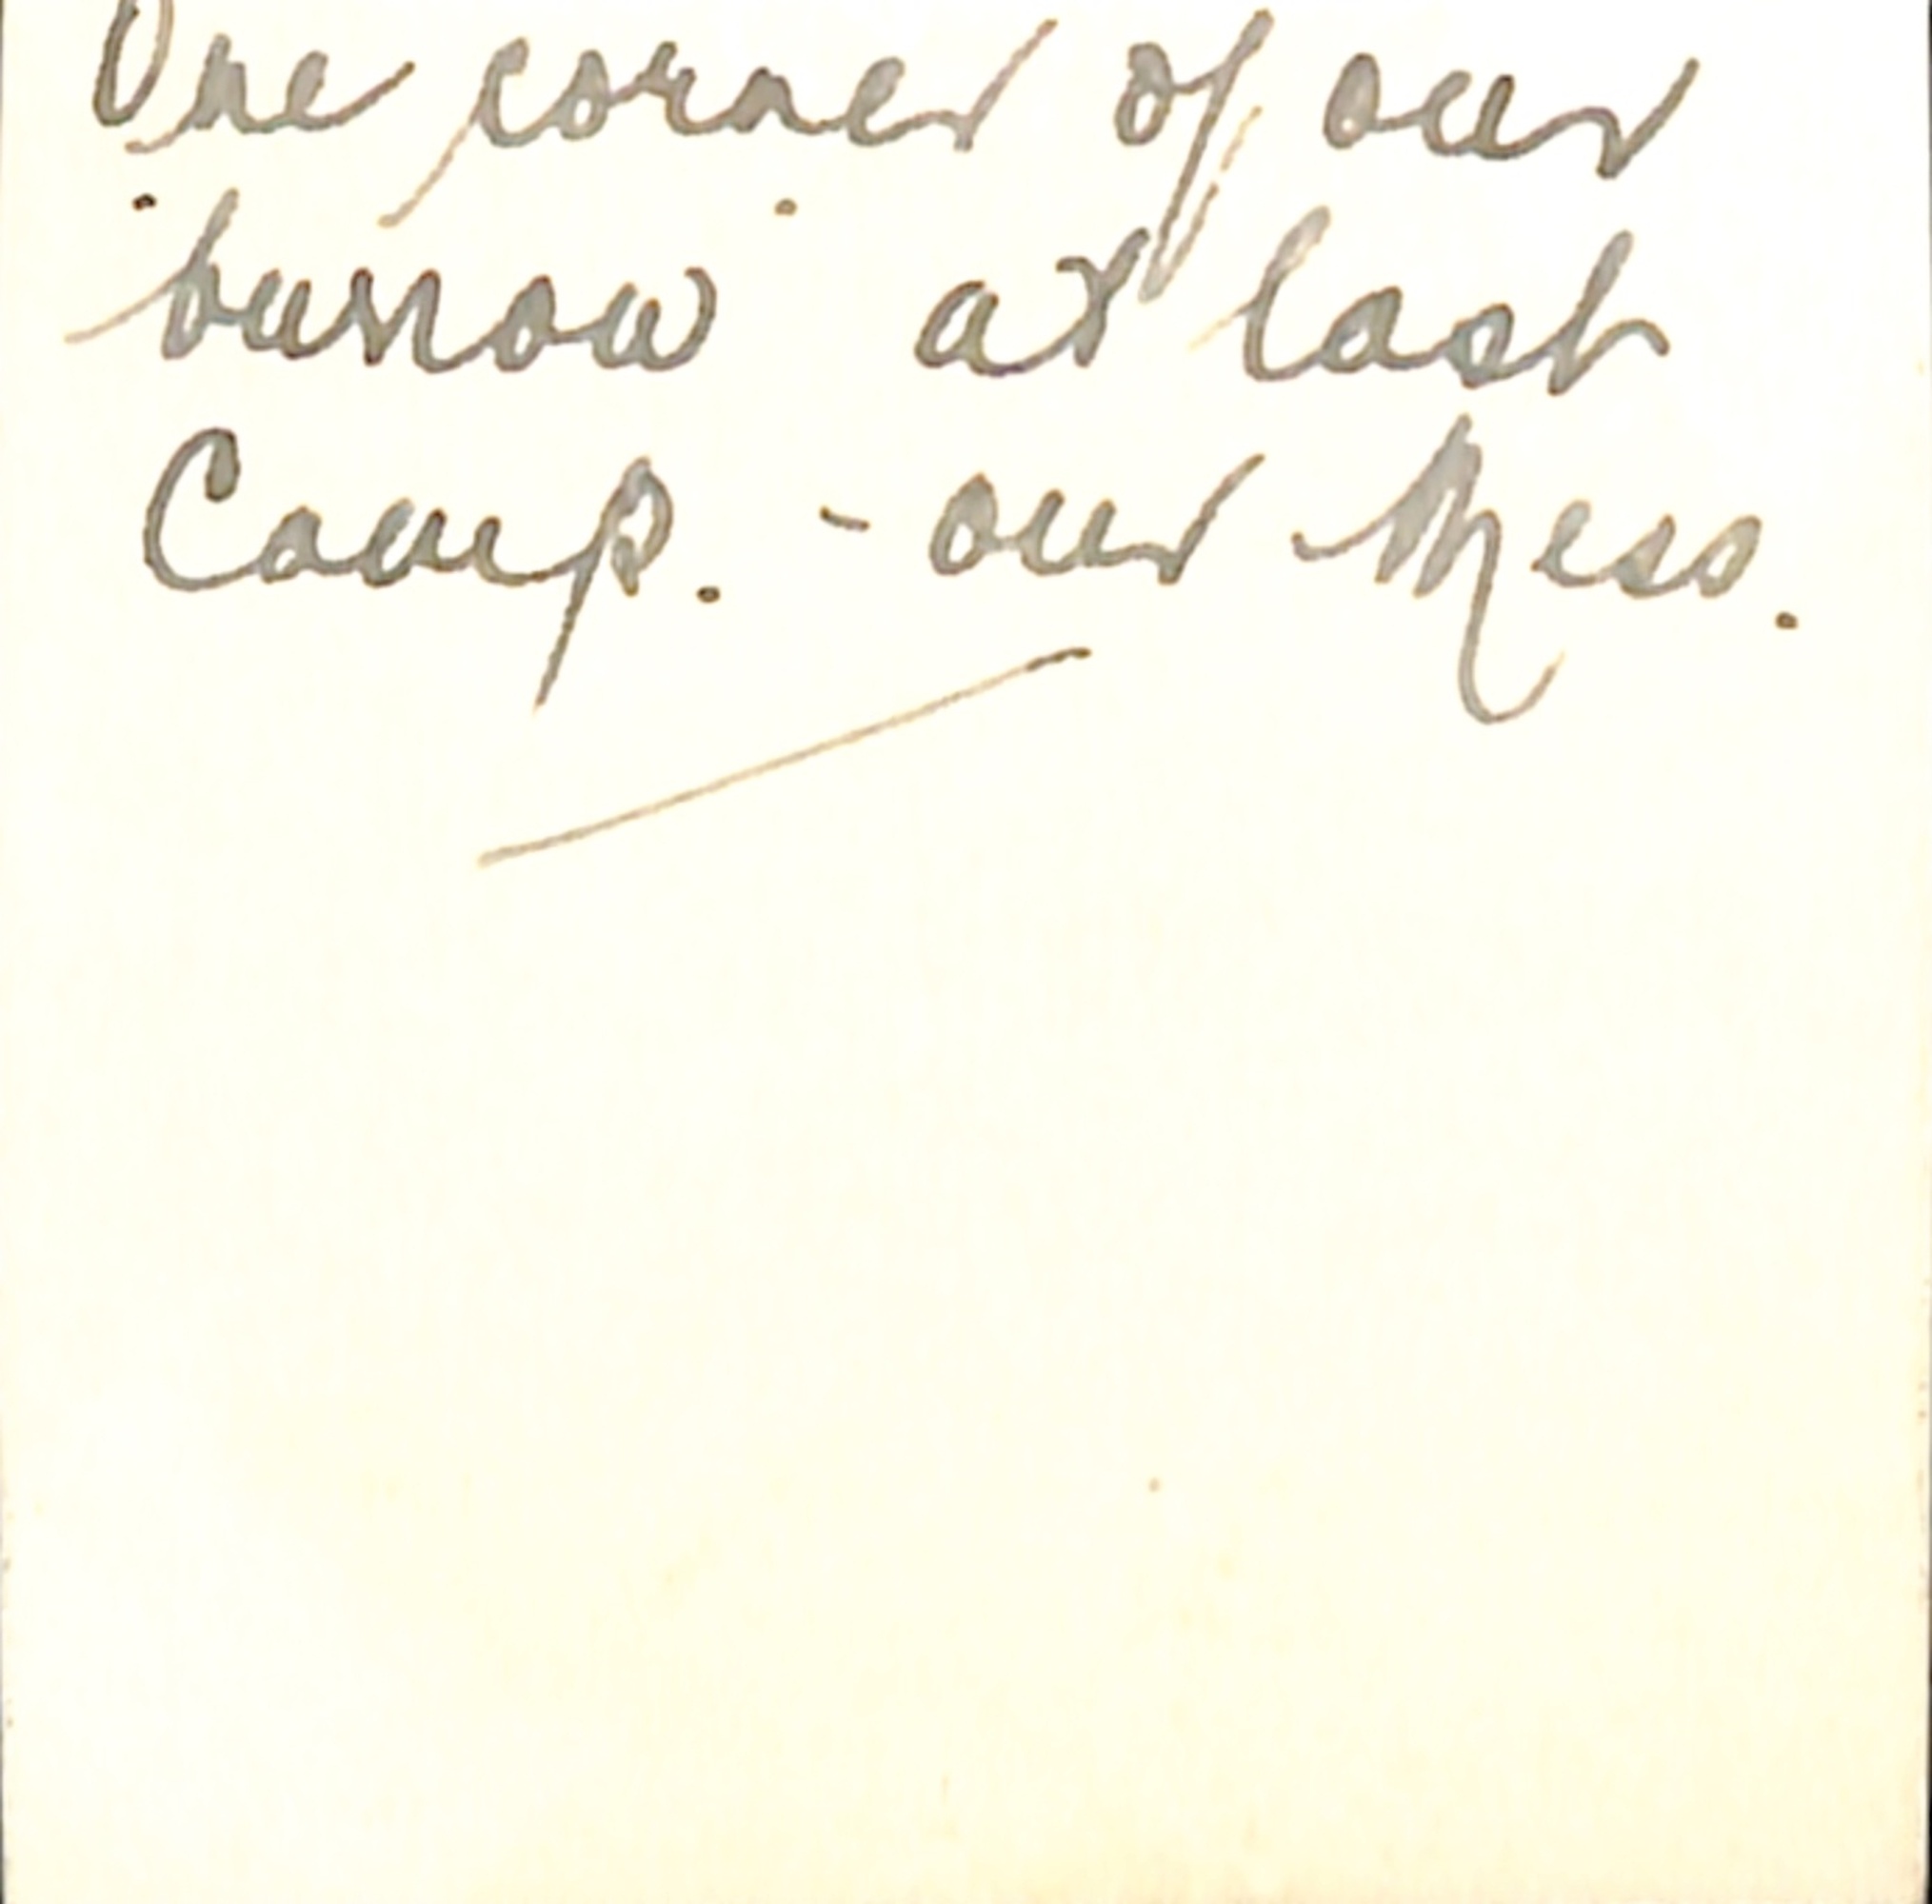 One corner of our
"burrow" at last
Camp. - our Mess.